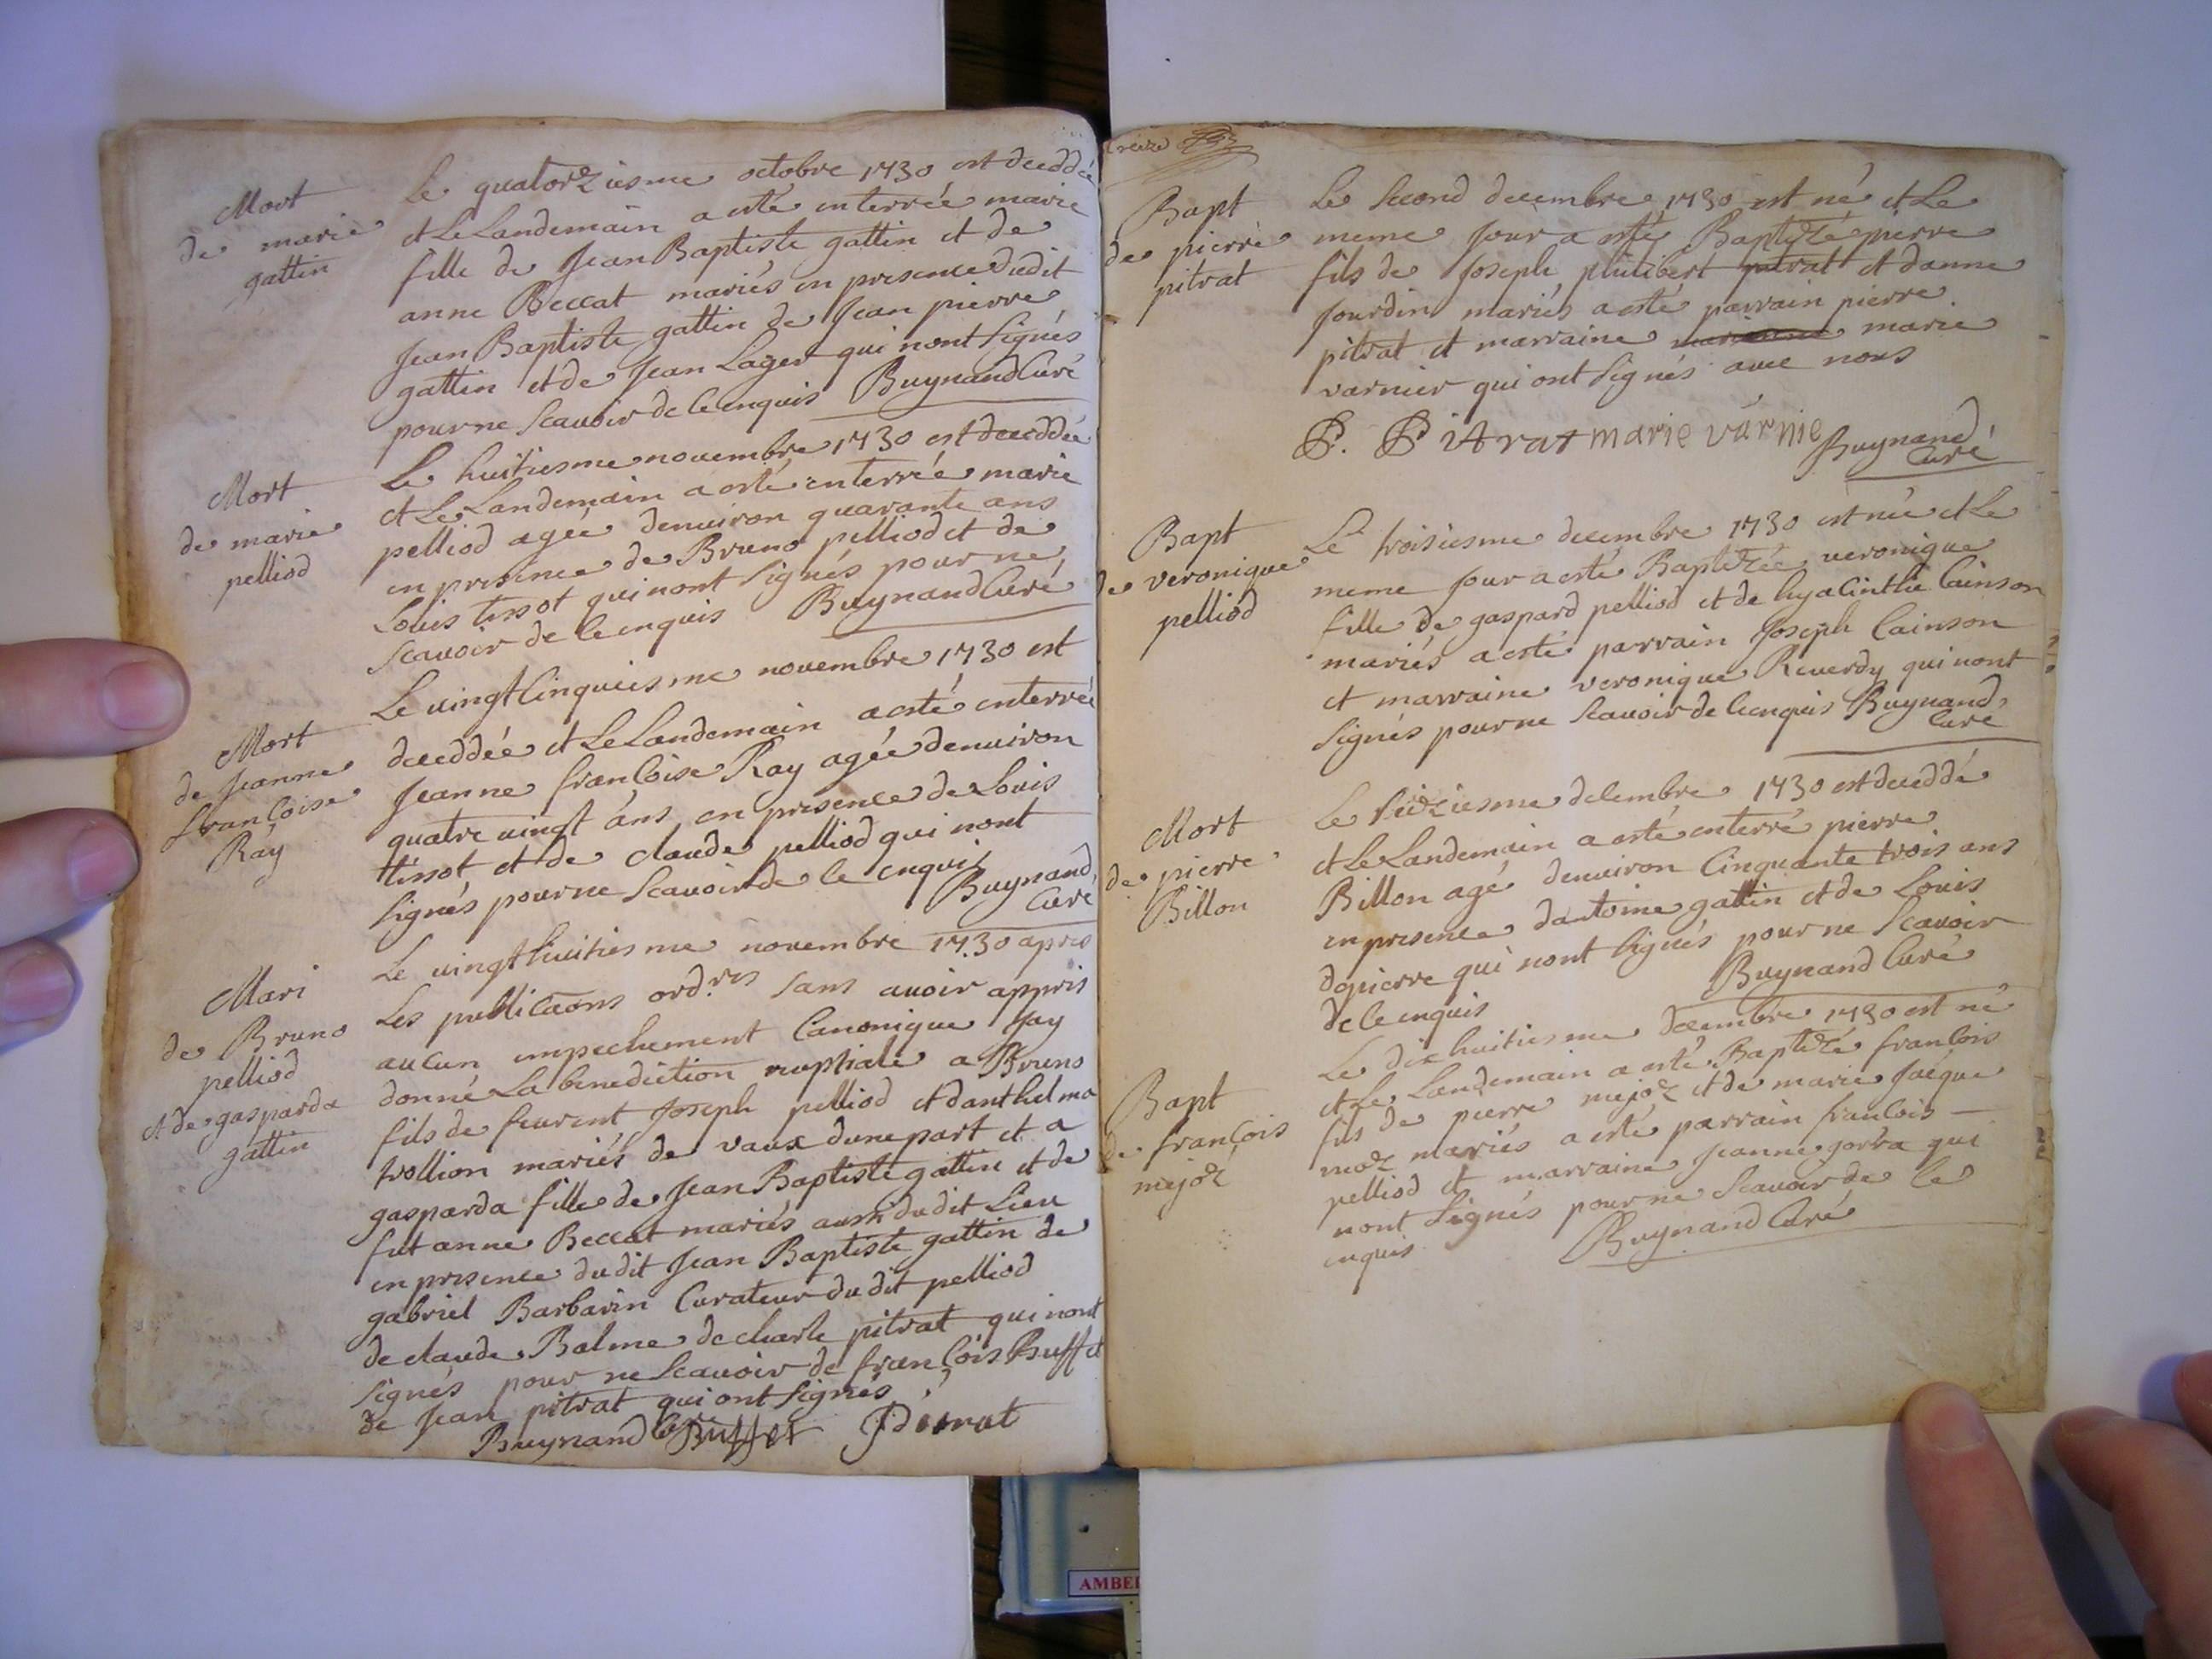 Mort
de marie
gattin
Le quatorziesme octobre 1730 est deceddée
et Le Landemain a esté enterrée marie
fille de Jean Baptiste gattin et de
anne Beccat mariés en presence dudit
Jean Baptiste gattin de Jean pierre
gattin et de Jean Lager qui nont signés
pour ne scavoir de ce enquis Buynand Curé
Mort
de marie
pelliod
Le huitiesme novembre 1730 est deceddée
et Le Landemain a esté enterrée marie
pelliod agée denuiron quarante ans
en presence de Bruno pelliod et de
Louis tissot qui nont signés pour ne
scavoir de ce enquis Buynand Curé
Mort
de Jeanne
francoise
Ray
Le vingt cinquiesme novembre 1730 est
deceddée et Le Landemain a esté enterrée
Jeanne françoise Ray agée denuiron
quatre vingt ans en presence de Louis
tissot et de claude pelliod qui nont
signés pour ne scavoir de ce enquis
Buynand
Curé
Mari
de Bruno
pelliod
et de gasparda
gattin
Le vingt huitiesme novembre 1730 apres
Les publicaons ord.res sans auoir appris
aucun empechement Canonique Jay
donné La benediction nuptiale a Bruno
fils de feu Joseph pelliod et danthelma
trollion mariés de vaux dune part et a
gasparda fille de Jean Baptiste gattin et de
fut anne Beccat mariés aussi dudit Lieu
en presence dudit Jean Baptiste gattin de
gabriel Barbarin Curateur dudit pelliod
de claude Balme de charle pitrat qui nont
signés pour ne scavoir de françois Buffet
de Jean pitrat qui ont signés
Buynand Curé Buffet Pitrat
treize
Bapt
de pierre
pitrat
Le second decembre 1730 est né et Le
meme jour a esté Baptizé pierre
fils de Joseph philibert pitrat et danne
Jourdin mariés a esté parrain pierre
pitrat et marraine marie
varnier qui ont signés avec nous
P. Pitrat marie varnie
Buynand
Curé
Bapt
de veronique
pelliod
Le troisiesme decembre 1730 est née et Le
meme jour a esté Baptizée veronique
fille de gaspard pelliod et de hyacinthe Cainson
mariés a esté parrain Joseph Cainson
et marraine veronique Reverdy qui nont
signés pour ne scavoir de ce enquis Buynand
Curé
Mort
de pierre
Billon
Le seiziesme decembre 1730 est deceddé
et Le Landemain a esté enterré pierre
Billon agé denuiron Cinquante trois ans
en presence dantoine gattin et de Louis
depierre qui nont signés pour ne scavoir
de ce enquis Buynand Curé
Bapt
de françois
mejoz
Le dixhuitiesme decembre 1730 est né
et Le Landemain a esté Baptizé françois
fils de pierre mejoz et de marie Jacque
moz mariés a esté parrain francois
pelliod et marraine Jeanne gorra qui
nont signés pour ne scavoir de ce
enquis Buynand Curé
AMBE